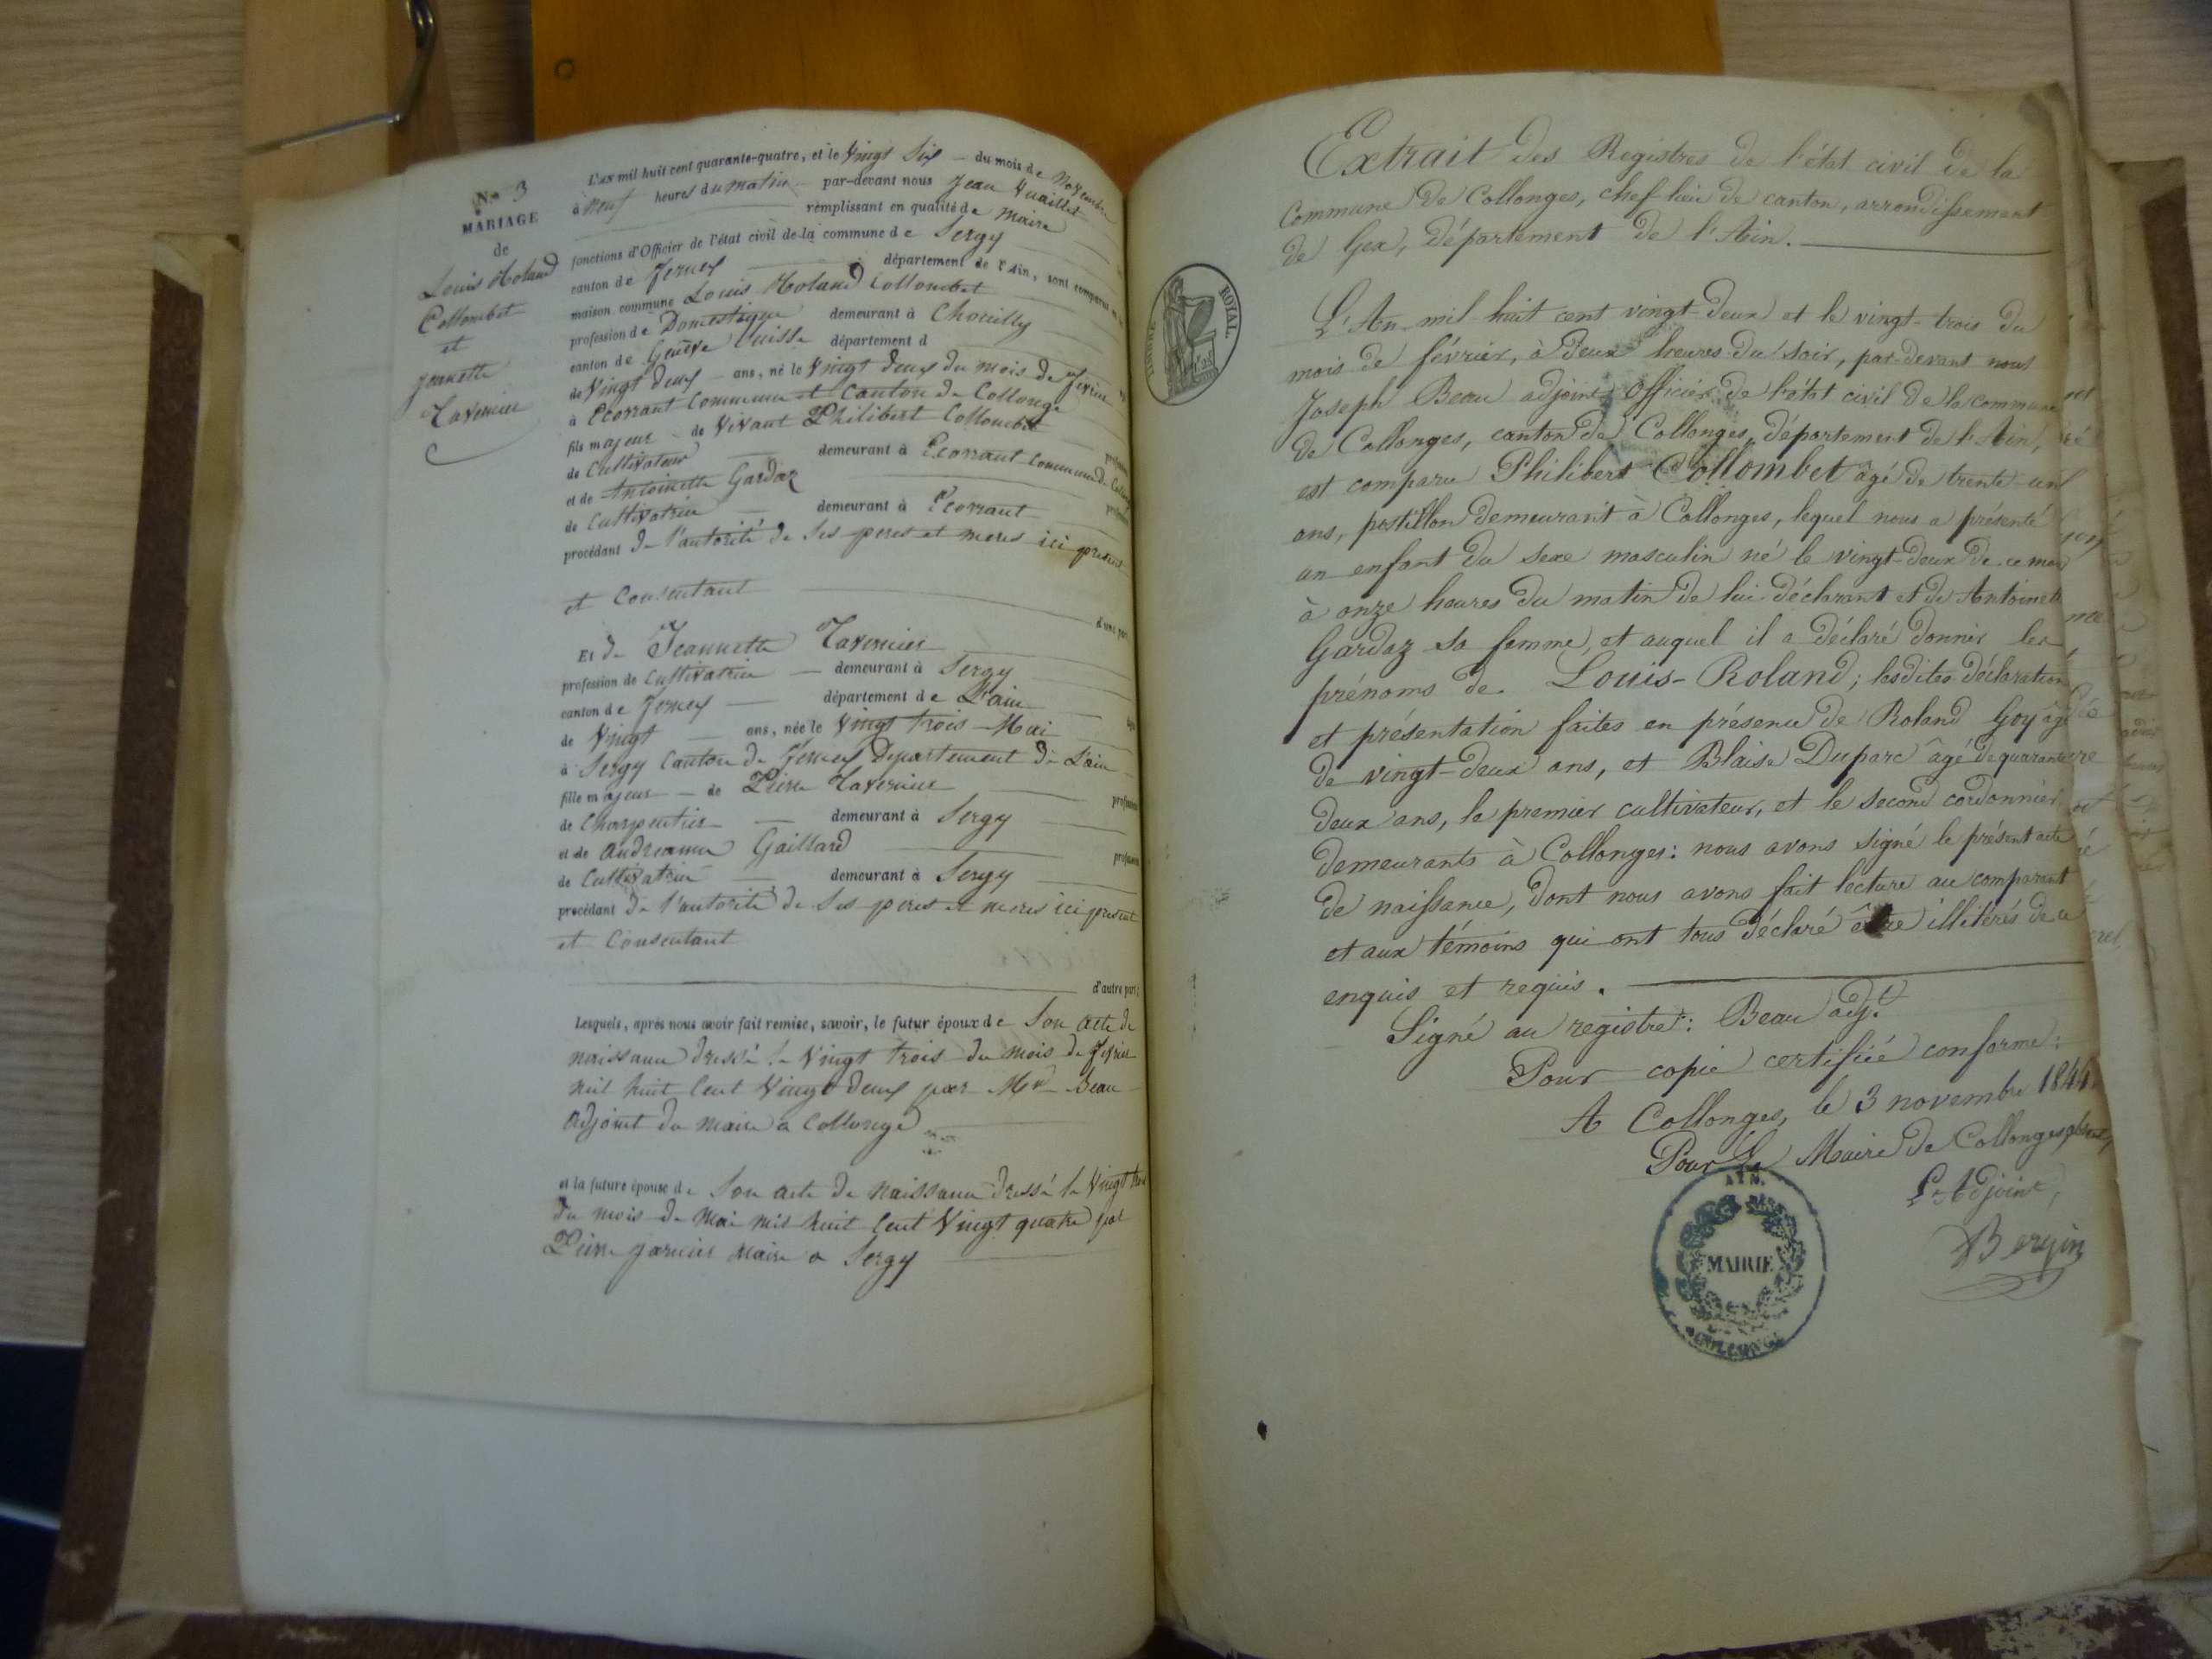 N.o 3
MARIAGE
de
Louis Roland
Collombet
et
Jeannette
Tavernier
L'an mil huit cent quarante-quatre, et le Vingt Six du mois de Novembre
à Neuf heures du matin par-devant nous Jean Vuaillet
remplissant en qualité de Maire
fonctions d'Officier de l'état civil de la commune de Sergy
canton de Ferney département de l'Ain, sont comparus
maison commune Louis Roland Collombet
profession de Domestique demeurant à Chouilly
canton de Genève Suisse département d
de Vingt deux ans, né le Vingt deux du mois de fevrier
à Ecorrant Commune et Canton de Collonge
fils majeur de Vivant Philibert Collombet
de Cultivateur demeurant à Ecorrant Commune de
et de Antoinette Gardaz
de Cultivatrice demeurant à Ecorrant
procédant de l'autorité de ses peres et meres ici present
et Consentant
d'une part
Et de Jeannette Tavernier
profession de Cultivatrice demeurant à Sergy
canton de Ferney département de L'ain
de Vingt ans, née le Vingt trois Mai
à Sergy Canton de Ferney Departement de L'ain
fille majeur de Pierre Tavernier
de Charpentier demeurant à Sergy
et de Gaillard
de Cultivatrice demeurant à Sergy
procédant de l'autorité de ses peres et meres ici present
et Consentant
d'autre part;
Lesquels, après nous avoir fait remise, savoir, le futur époux de Son acte de
naissance dressé le Vingt trois du mois de fevrier
mil huit Cent Vingt deux par Beau
adjoint du maire a Collonge
et la future épouse de Son acte de Naissance dressé le Vingt trois
du mois de Mai mil huit Cent Vingt quatre par
Pierre maire a Sergy
Extrait des Registres de l'état civil de la
Commune de Collonges, chef lieu de canton, arrondissement
de Gex, département de l'Ain.
TIMBRE ROYAL
L'An mil huit cent vingt-deux et le vingt-trois du
mois de février, à deux heures du soir, par-devant nous
Joseph Beau adjoint Officier de l'état civil de la commune
de Collonges, canton de Collonges, département de l'Ain,
est comparu Philibert Collombet âgé de trente-un
ans, postillon demeurant à Collonges, lequel nous a présenté
un enfant du sexe masculin né le vingt-deux de ce mois
à onze heures du matin de lui déclarant et de Antoinette
Gardaz sa femme, et auquel il a déclaré donner les
prénoms de Louis-Roland; lesdites déclaration
et présentation faites en présence de Roland Goy âgé
de vingt-deux ans, et Blaise Duparc âgé de quarante
deux ans, le premier cultivateur, et le second cordonnier
demeurants à Collonges: nous avons signé le présent acte
de naissance, dont nous avons fait lecture au comparant
et aux témoins qui ont tous déclaré être illitérés de ce
enquis et requis.
Signé au registre: Beau adj.t
Pour copie certifiée conforme:
A Collonges, le 3 novembre 1844
Pour Le Maire de Collonges absent,
L'Adjoint,
AIN.
MAIRIE